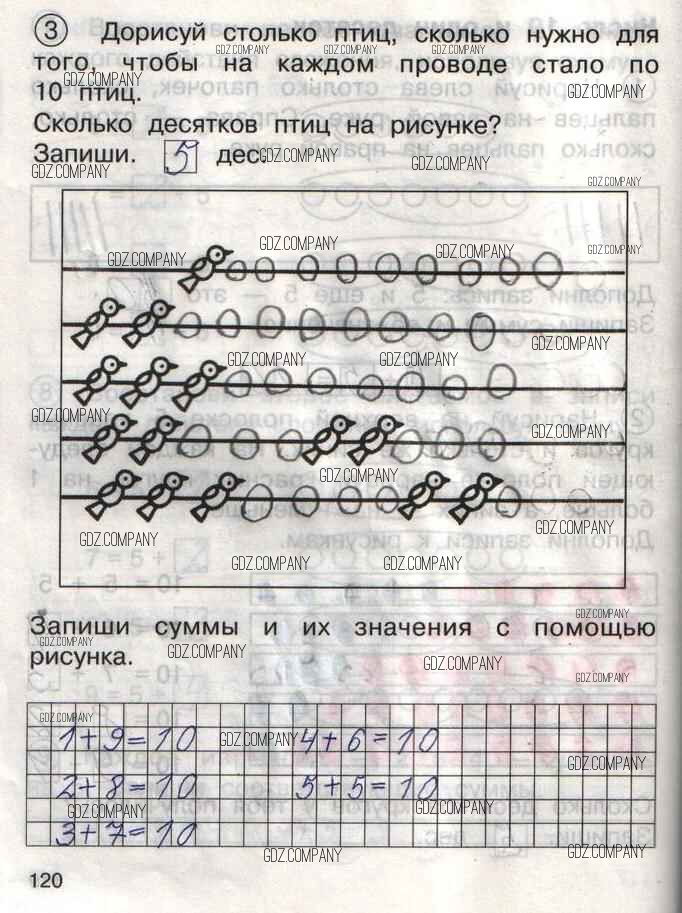 3 Дорисуй столько птиц, сколько нужно для
того, чтобы на каждом проводе стало по
10 птиц.
Сколько десятков птиц на рисунке?
Запиши. 5 дес.
GDZ.COMPANY
Запиши суммы и их значения с помощью
рисунка.
1+9=10 4+6=10
2+8=10 5+5=10
3+7=10
120